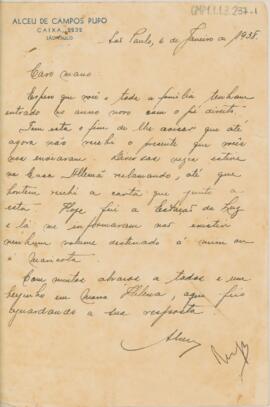 ALCEU DE CAMPOS PUPO
CAIXA 3932
SÃO PAULO
CMP1.1.3.237-1
São Paulo, 6 de Janeiro de 1938.
Caro mano
Espero que você e toda a familia tenham
entrado no anno novo com o pé direito
Tem esta o fim de lhe avisar que até
agora não recebi o presente que vocês
nos enviaram. Varias vezes estive
na Casa Allemã reclamando, até que
hontem recebi a carta que junto a
esta. Hoje fui a Estação da Luz
e lá me informaram não existir
nenhum volume destinado á mim ou
á Maricota.
Com muitos abraços a todos e um
beijinho em Maria Helena, aqui fico
aguardando a sua resposta
Alceu